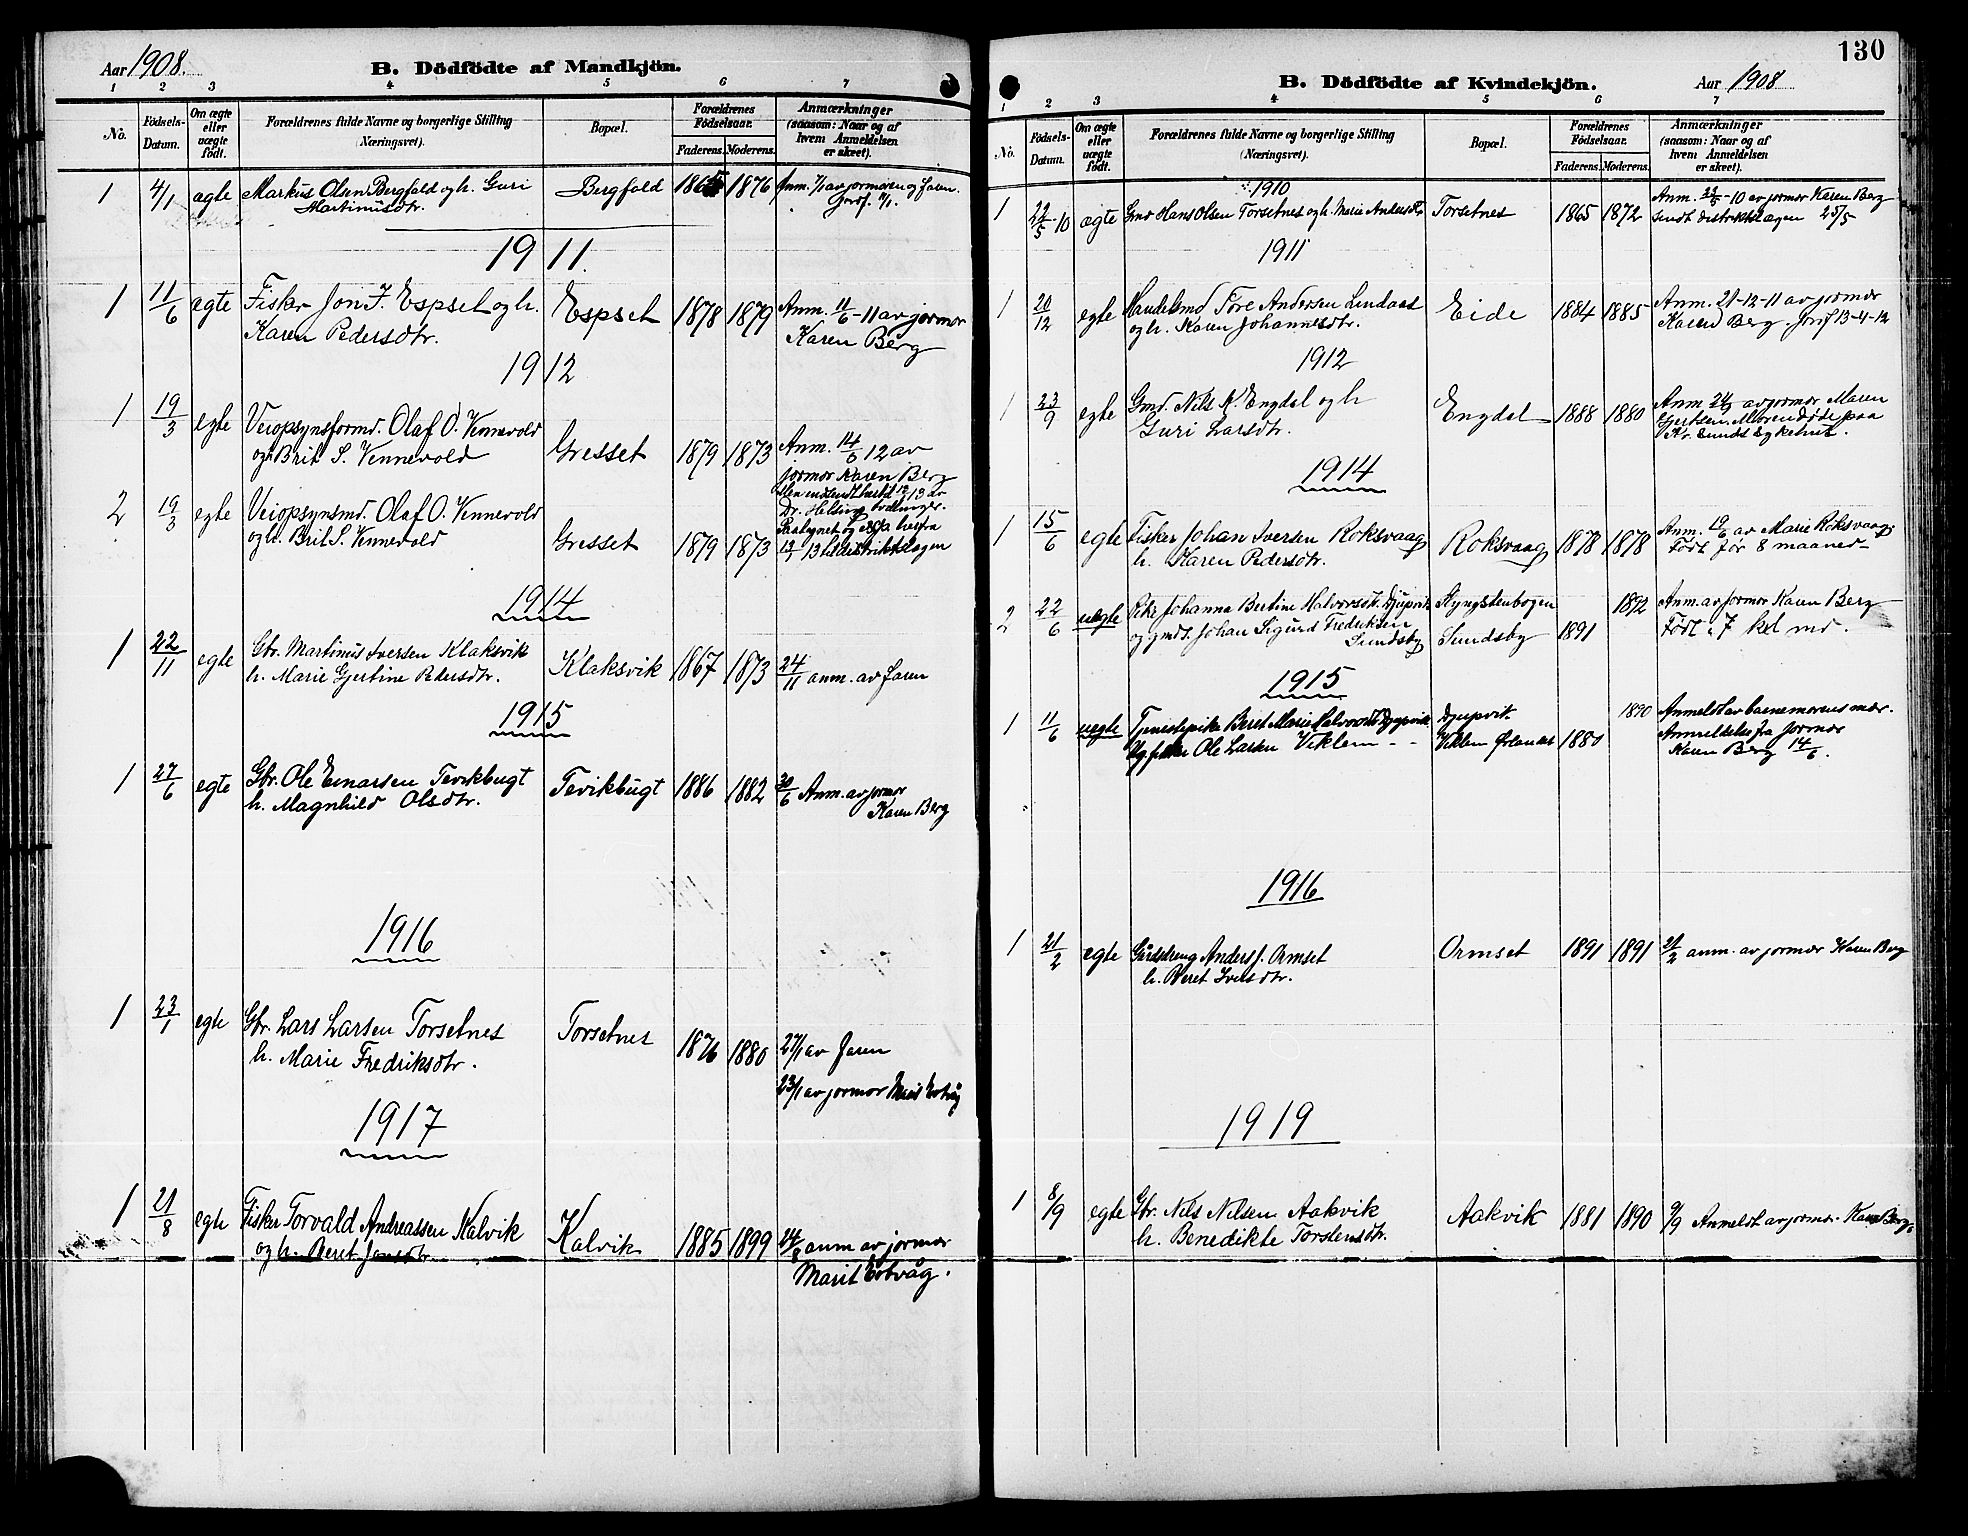 Aar 1908.
B. Dödfödte af Mandkjön.
1 2 3 4 5 6 7
No.
Födsels-
Datum.
Om ægte
eller
uægte
födt.
Forældrenes fulde Navne og borgerlige Stilling
(Næringsvei).
Bopæl.
Forældrenes
Födselsaar.
Faderens. Moderens.
Anmærkninger
(saasom: Naar og af
hvem Anmeldelsen
er skeet).
1 4/1 ægte Markus Olsen Bergfald og h. Guri Bergfald 1876 Anm. 7/1 av jormoren og faren.
Martinusdtr.
1911.
1 11/6 egte Fisker Jon J. Espset og h. Espset 1878 1879 Anm. 11/6-11 av jormor
Karen Pedersdtr. Karen Berg
1912
1 19/3 egte Veiopsynsformd. Olaf O. Vennevold
og h. Brit S. Vennevold Gresset 1879 1873 Anm. 14/6 12 av
jormor Karen Berg
2 19/3 egte Veiopsynsmd. Olaf O. Vennevold
og h. Brit S. Vennevold Gresset 1879 1873 12/2 13 til distriktslægen
1914
1 22/11 egte Gbr. Martinus Iversen Klaksvik Klaksvik 1867 1873 24/11 anm. av faren
h. Marie Gjertine Pedersdtr.
1915
1 27/6 egte Gbr. Ole Einarsen Tevikbugt Tevikbugt 1886 1882 30/6 Anm. av jormor
h. Magnhild Olsdtr. Karen Berg
1916
1 23/1 egte Gbr. Lars Larsen Torsetnes Torsetnes 1876 1880 27/1 av faren
h. Marie Fredriksdtr.
23/1 av jormor Marit Ertvåg
1917
1 21/8 egte Fisker Torvald Andreassen Kalvik Kalvik 1885 1899 24/8 anm av jormor
og h. Beret Jonsdtr. Marit Ertvåg.
130
B. Dödfödte af Kvindekjön. Aar 1908
1 2 3 4 5 6 7
No.
Födsels-
Datum.
Om ægte
eller
uægte
födt.
Forældrenes fulde Navne og borgerlige Stilling
(Næringsvei).
Bopæl.
Forældrenes
Födselsaar.
Faderens. Moderens.
Anmærkninger
(saasom: Naar og af
hvem Anmeldelsen
er skeet).
1910
1 22/5-10 ægte Gmd Hans Olsen Torsetnes og h. Marie Andersdtr Torsetnes 1865 1872 Anm. 23/5-10 av jormor Karen Berg
Sendt distriktslægen 25/5
1911
1 20/12 egte Handelsmd Tore Andersen Lindaas Eide 1884 1885 Anm. 21-12-11 av jormor
og h. Karen Johannesdtr. Karen Berg. 13-4-12
1912
1 23/9 egte Gmd. Nils K. Engdal og h Engdal 1888 1880 Anm. 24/9 av jormor Maren
Guri Larsdtr. Gjertsen. Moren døde paa
Kr.sunds sykehus.
1914
1 15/6 egte Fisker Johan Iversen Roksvaag Roksvaag 1878 1878 Anm. 19/6 av Marie Roksvaag.
h. Karen Pedersdtr. Født før 8 maaned
2 22/6 uegte Pike Johanna Bertine Halvorsdtr. Djupvik Styngstenbogen 1892 Anm. av jormor Karen Berg
og gmds. Johan Sigurd Fredriksen Sundsby 1891 Født i 7 kal md.
Sundsby
1915
1 11/6 uegte Tjenestepike Beret Marie Halvorsdtr Djupvik Djupvik 1890 Anmeldt av barnemorens mor.
Ug. fisker Ole Larsen Viklem Viklem Ørlandet 1880 Anmeldelse fra jormor
Karen Berg 14/6.
1916
1 21/2 egte Gårddreng Anders J. Ormset Ormset 1891 1891 21/2 anm. av jormor Karen Berg
h. Beret Iversdtr.
1919
1 8/9 egte Gbr. Nils Nilsen Aakvik Aakvik 1881 1890 9/9 Anmeldt av jormor Karen Berg.
h. Benedikte Torstensdtr.